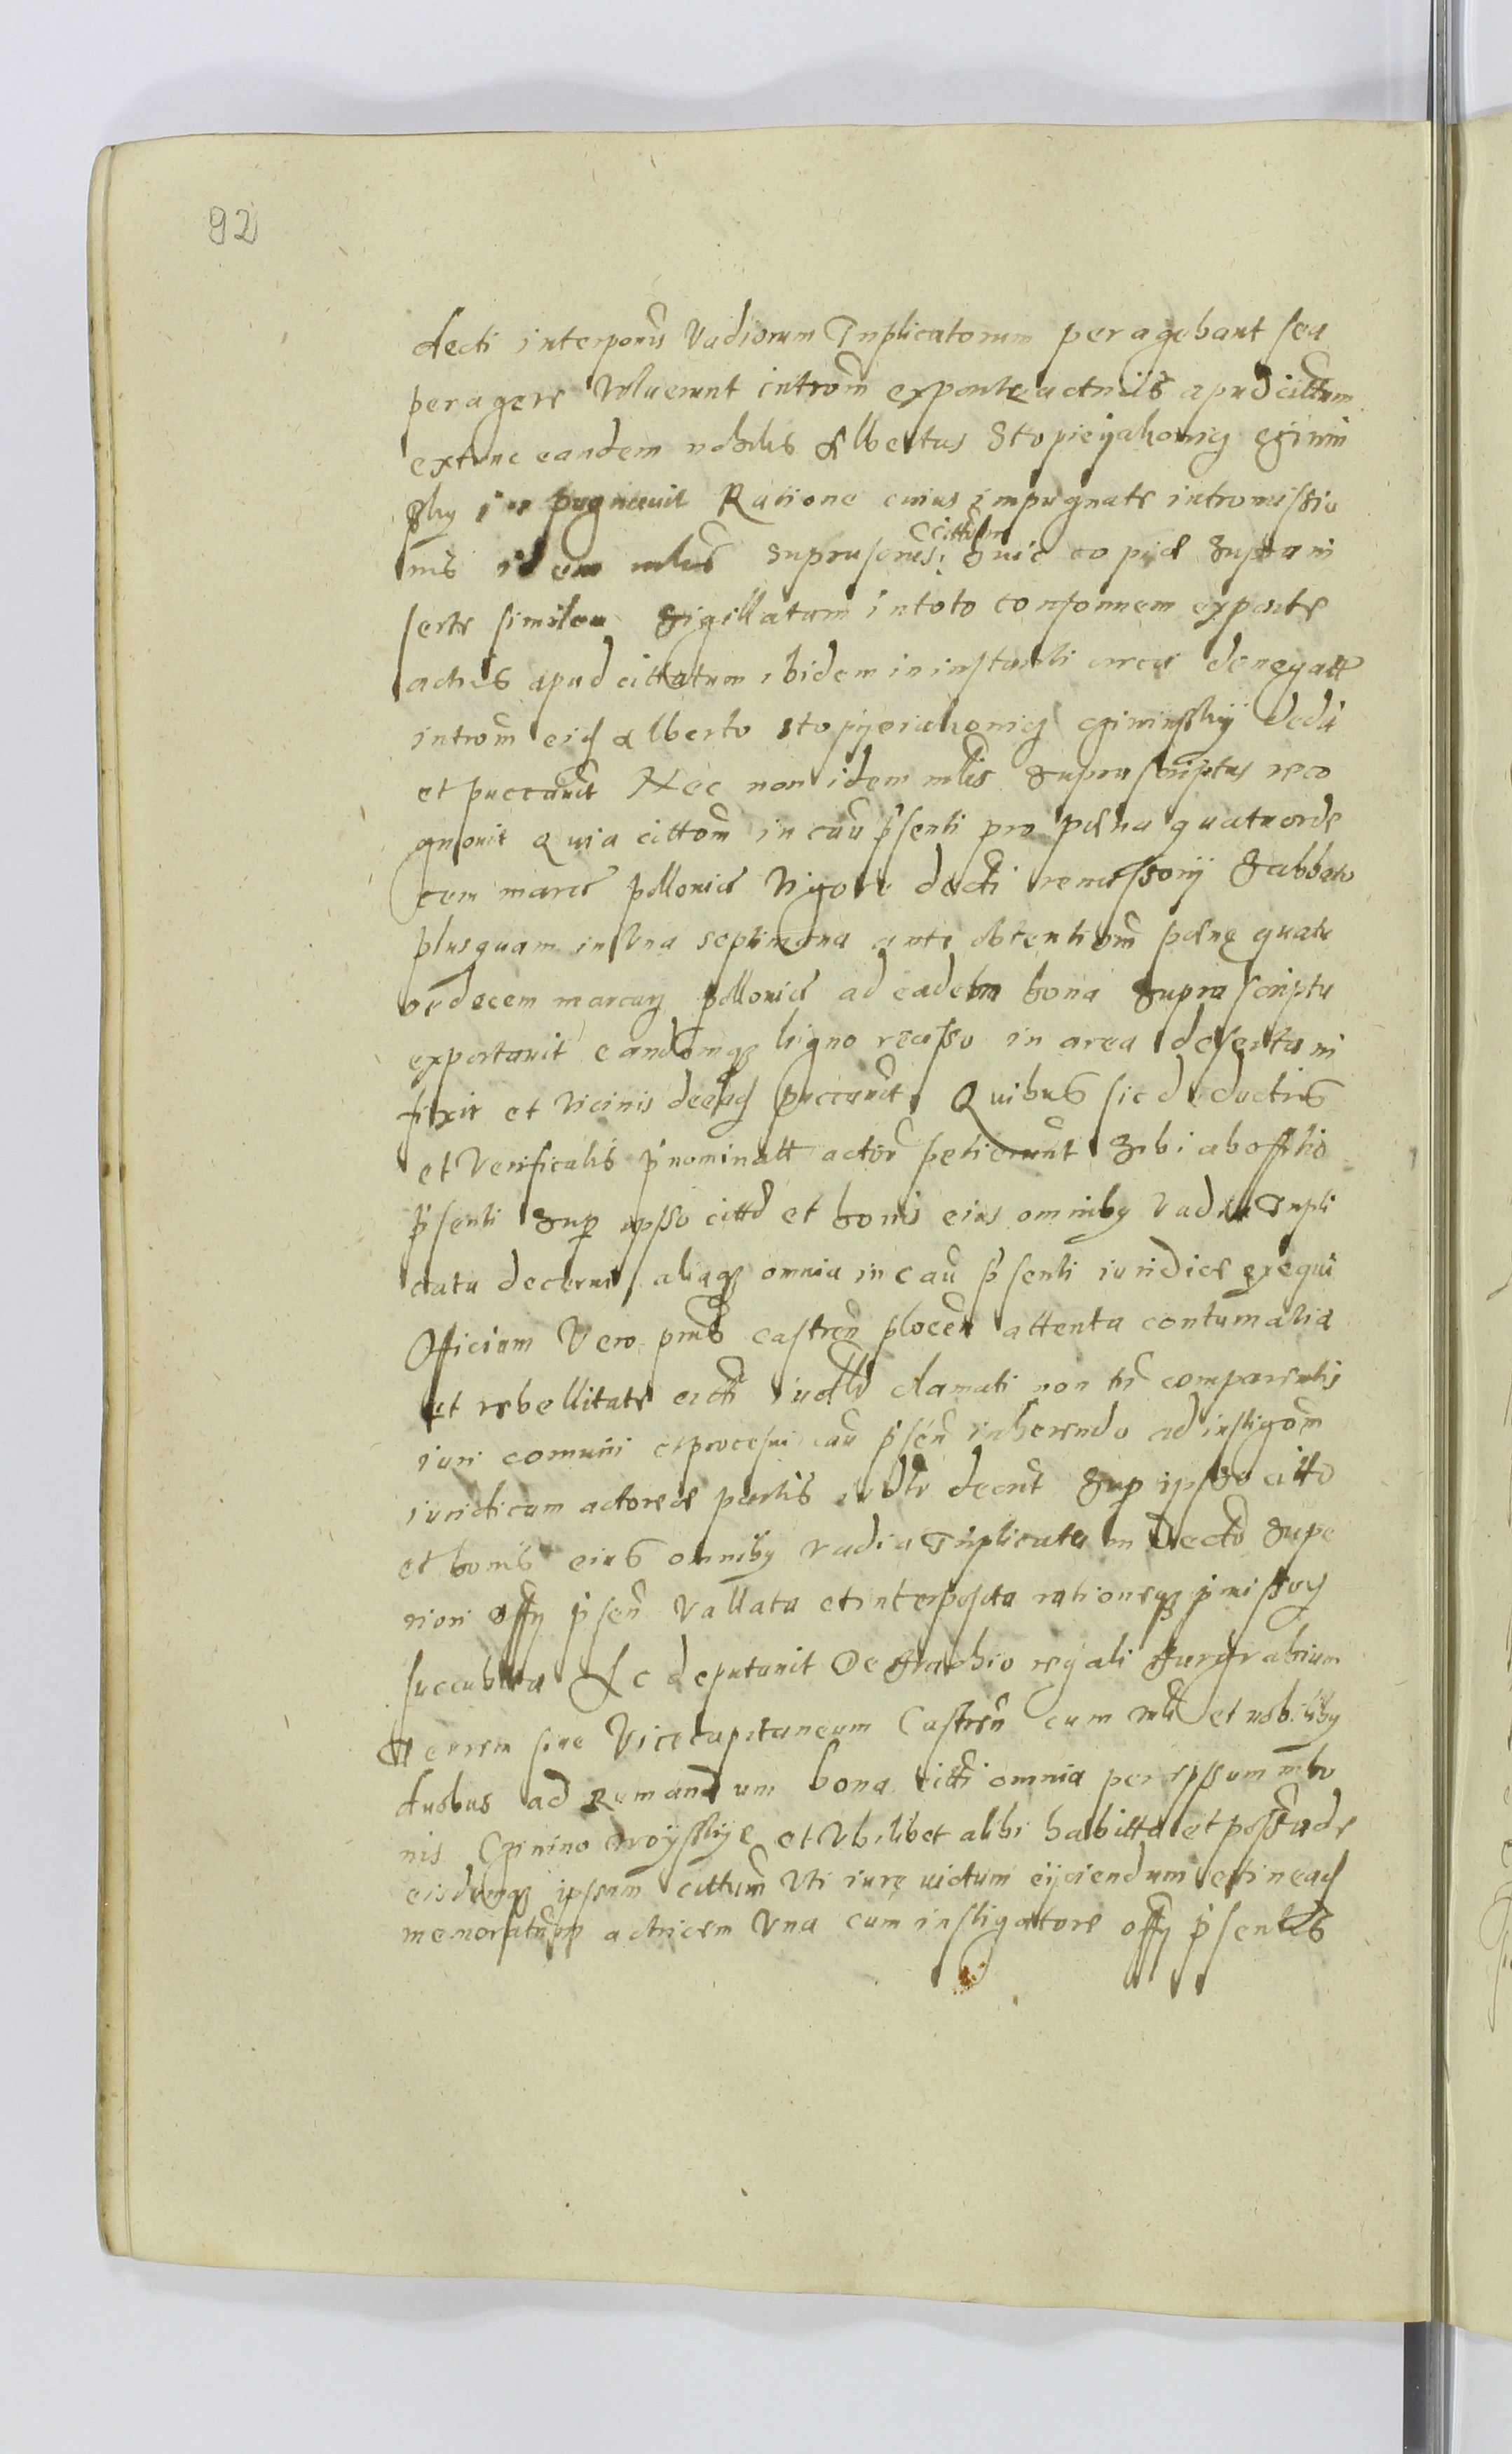 92
decti interponis Vadiorum Triplicatorum peragebant seu
peragere Voluerunt introm̃ exparte actricis apud cittum
extunc eandem nobilis Albertus Stopieyakonig
impugnavit Ratione cuius impugnate intromissio
cittm̃
nis idem suprascrius huic copie supra in
serte similem Sigillatam in toto consonnem exparte
actricis apud cittatum ibidem in instanti circa denegatt
introm̃ eid Alberto Stopyeiakonig dedit
et puccavit Nec non idem mlis Suprascriptus reco
gnovit Quia cittom̃ in cau p̃senti pro pæna quatuorde
cem marcis pollonica Vigore decti remissorij Sabbato
plusquam in Una septimana ante obtentiom̃ pæne quatu
ordecem marcarz pollonica ad eadem bona Suprascripta
exportavit eandemqz ligno recisso in area deserta in
fixit et Vicinis deead puccavit Quibus sic deductis
et Verificatis p̃nominatt actor petierunt Sibi ab offitio
p̃senti Sup ipsso citto et bonis eius omniby Vadia Tripli
cata decerni aliaqz omnia in cau p̃senti iuridice exequi
Officium Vero pn̄s castren plocen attenta contumatia
et rebellitate citti iudlr clamati non tn̄ comparentis
iuri comuni et procesui cau p̃sen inherendo ad instigom̃
iuridicam actoreæ partis decnt Sup ipsso citto
et bonis eius omniby vadia Triplicata in decto Supe
riori offy p̃sen Vallata et interposita rationeqz p̃missorz
succubita Ac deputavit De brachio regali Burgrabium
sive Vicecapitaneum Castren cum mli et nobiliby
duobus ad bona citti omnia per ipssum in bo
nis et Vbilibet alibi habitta et
eisdemqz ipssum cittum̃ Vti iure victum eijciendum et in ead
memoratam actricem Vna cum instigatore offy p̃sentis